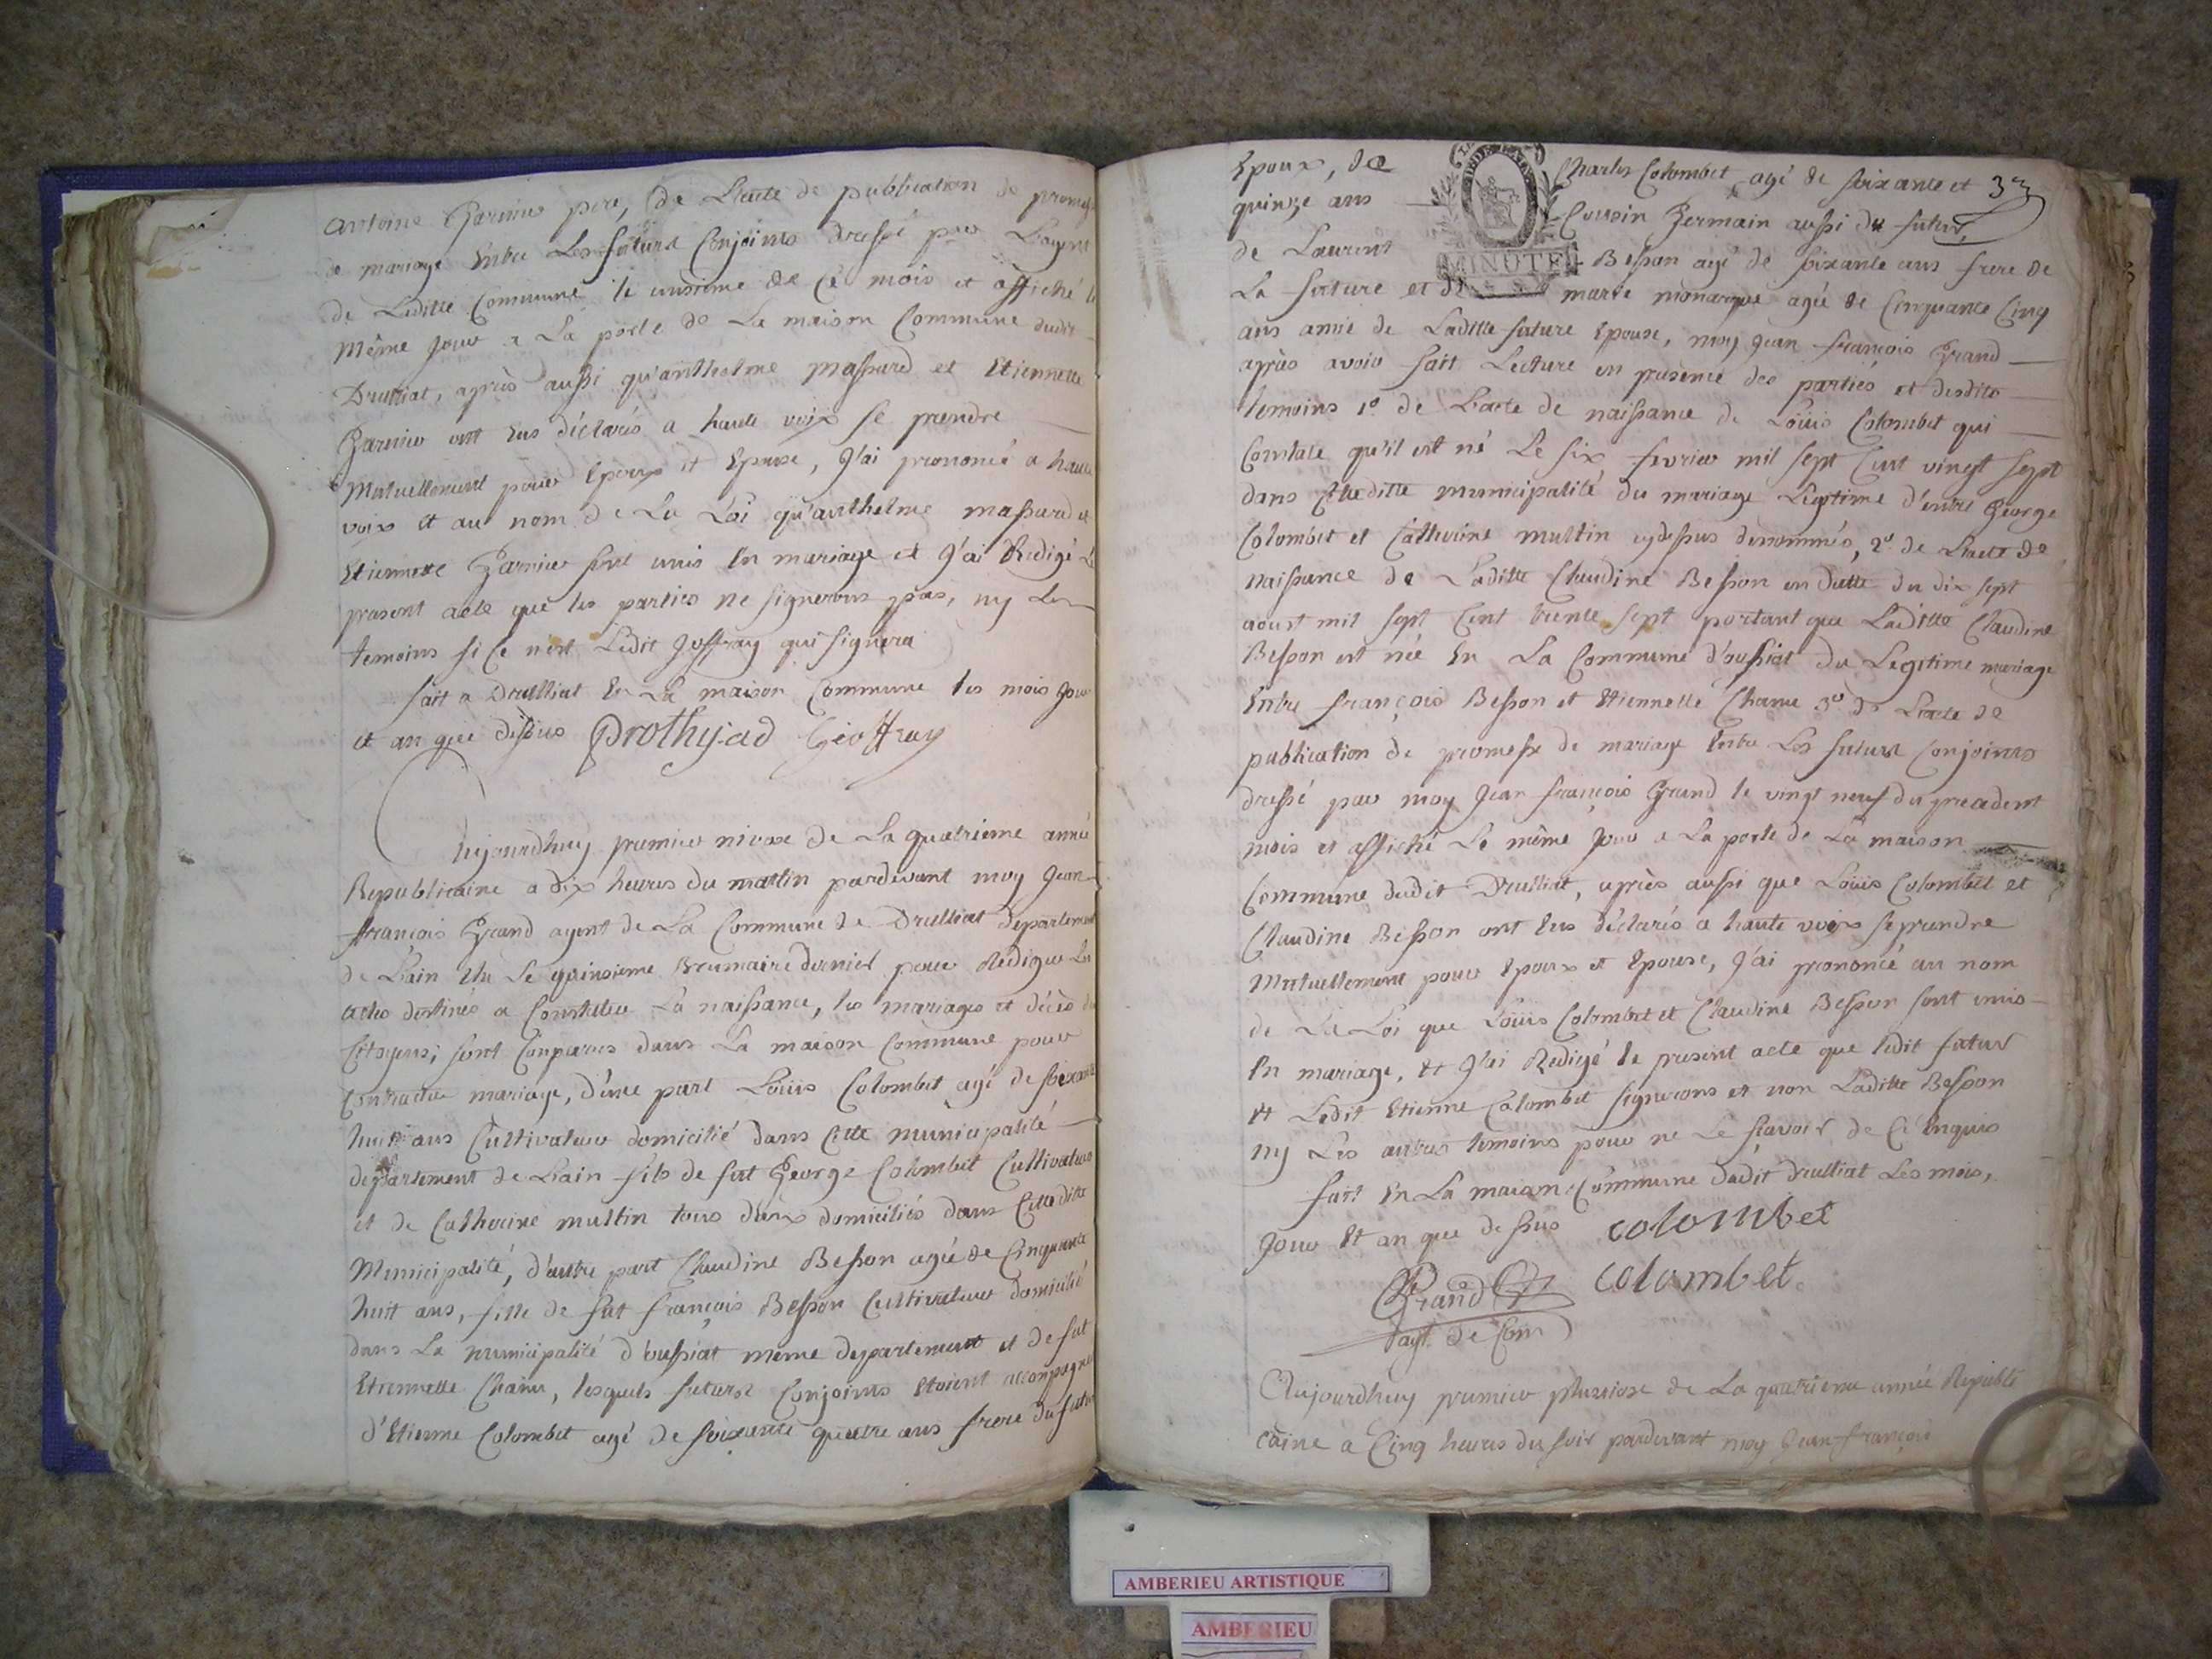 antoine Garnier pere, de Lacte de publication de promesse
de mariage Entre Les futurs Conjoints dressé par Lagent
de Laditte Commune le onzieme de Ce mois et affiché le
Même jour a La porte de La maison Commune dudit
Drulliat, après aussi qu'anthelme massard et Etiennette
Garnier ont Eus déclarés a haute voix se prendre
Mutuellement pour Epoux et Epouse, J'ai prononcé a haute
voix et au nom de La Loi qu'anthelme massard et
Etiennette Garnier sont unis En mariage et J'ai Redigé Le
present acte que les parties ne signerons pas, ny Les
temoins si Ce n'est Ledit Joffray qui signera
fait a Drulliat En La maison Commune les mois Jour
et an que dessus Prothy.ad Geoffray
Aujourdhuy premier nivose de La quatrieme année
Republicaine a dix heures du mattin pardevant moy Jean
françois Grand agent de La Commune de Drulliat departement
de Lain Elu Le quinzieme Brumaire dernier pour Rediger Les
actes destinés a Constater La naissance, les mariages et décès des
Citoyens; sont Comparus dans La maison Commune pour
Contracter mariage, d'une part Loüis Colombet agé de soixante
huit ans Cultivateur domicilié dans Cette municipalité
departement de Lain fils de fut George Colombet Cultivateur
et de Catherine multin tous deux domiciliés dans Cetteditte
Municipalité, d'autre part Claudine Besson agée de Cinquante
huit ans, fille de fut françois Besson Cultivateur domicilié
dans La municipalité d'oussiat même departement et de fut
Etiennette Chanu, lesquels futurs Conjoints Etoient accompagnés
d'Etienne Colombet agé de soixante quatre ans frere du futur
Epoux, de Charles Colombet agé de soixante et 33
quinze ans Cousin Germain aussi du futur,
de Laurent Besson agé de soixante ans frere de
MINUTE
La future et de marie monarque agée de Cinquante Cinq
ans amie de Laditte future Epouse, moy Jean françois Grand
après avoir fait Lecture en presence des parties et desdits
temoins 1º. de Lacte de naissance de Loüis Colombet qui
Constate qu'il est né Le six fevrier mil sept Cent vingt sept
dans Cetteditte municipalité du mariage Legitime d'entre George
Colombet et Catherine multin cydessus denommés, 2º. de Lacte de
naissance de Laditte Claudine Besson en datte du dix sept
aoust mil sept Cent trente sept portant que Laditte Claudine
Besson est née En La Commune d'oussiat du Legitime mariage
Entre françois Besson et Etiennette Chanu 3º de Lacte de
publication de promesse de mariage Entre Les futurs Conjoints
dressé par moy Jean françois Grand le vingt neuf du precedent
mois et affiché Le même Jour a La porte de La maison
Commune dudit Drulliat, après aussi que Loüis Colombet et
Claudine Besson ont Eus déclarés a haute voix se prendre
Mutuellement pour Epoux et Epouse, J'ai prononcé au nom
de La Loi que Loüis Colombet et Claudine Besson sont unis
En mariage, et J'ai Redigé le present acte que ledit futur
et Ledit Etienne Colombet signerons et non Laditte Besson
ny Les autres temoins pour ne Le sçavoir de Ce Enquis
fait En La maison Commune dudit Drulliat Les mois,
Jour Et an que dessus colombet
Grand colombet
agt. de Com
Aujourdhuy premier pluviose de La quatrieme année Republi
caine a Cinq heures du soir pardevant moy Jean françois
AMBERIEU ARTISTIQUE
AMBERIEU